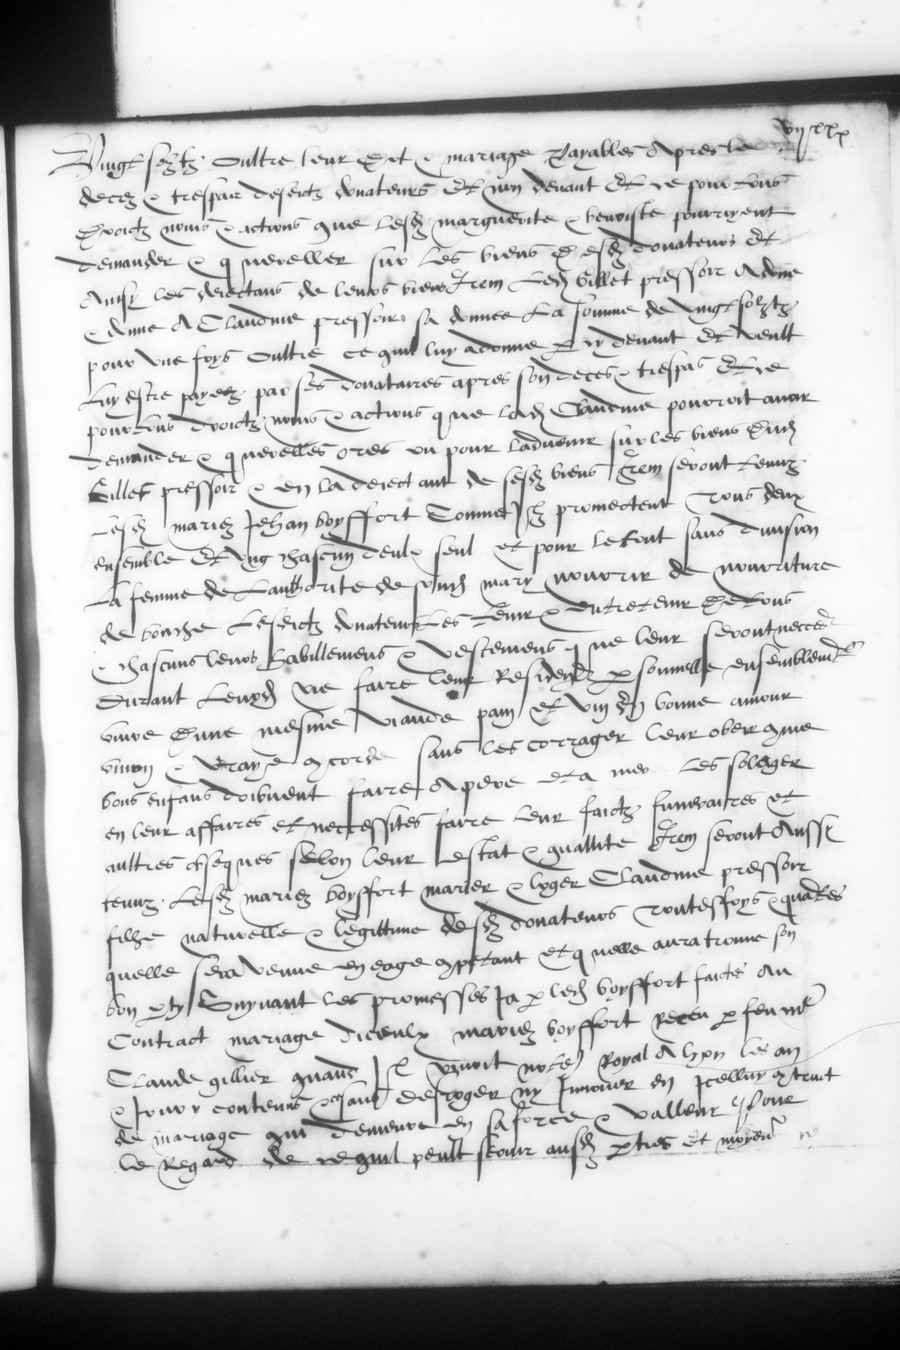 Vingt soltz oultre leur dit & mariage payalles apres le
decez & trespas desdictz donateurs Et non devant Et ce pour tous
droictz noms & actions que lesd marguerite & benoiste pourroyent
demander & quereller sur les biens desd donateurs Et
Ausy les deiectans de leurs biens Item led Gillet pressoir A donne
& donne A Claudine pressoir sa donnee La somme de vingt soltz
pour une foys oultre ce quil luy a donne cy devant Et veult
luy estre payee par ses donataires apres son deces & trespas Et ce
pour tous droictz noms & actions que lad Claudine pourroit avoir
demander & querelles ores ou pour ladvenir sur les biens dud
Gillet pressoir & en la deiectant de sesd biens Item seront tenuz
Lesd mariez Jehan boyffort promectent tous deux
ensemble Et ung chascun deulx seul et pour le tout sans division
La femme de Lauthorite de sond mary nourrir de nourriture
de bouche Lesdictz donateurs Les tenir & entretenir de tous
& chascuns leurs habillemens & vestemens que leur seront neccess
Durant Leurd vie faire leur Residence personnelle ensemblement
vivre dune mesme viande pain Et vin En bonne amour
union & vraye concorde sans les corrager leur obeir que
bons enfans doibvent faire A pere et a mere Les solager
en leur affaires et necessites faire leur faictz funeraires et
aultres obseques selon leur estat & quallite Item seront Aussy
tenuz Lesd mariez boyffort marier & loger Claudine pressoir
filhe naturelle & legittime desd donateurs toutesfoys & quantes
quelle sera venue en eage competant et quelle aura trouve son
bon party Suyvant les promesses Ja par led boyffort faictes au
Contract mariage diceulx mariez boyffort Receu par feu me
Claude gillier quand Il vivoit note Royal A lyon les an
& Jour y contenus & sans desroger ny Innover en Icelluy contract
de mariage qui demeure en sa force & valleur & pour
le Regard de ce quil peult servir ausd parties Et moyen